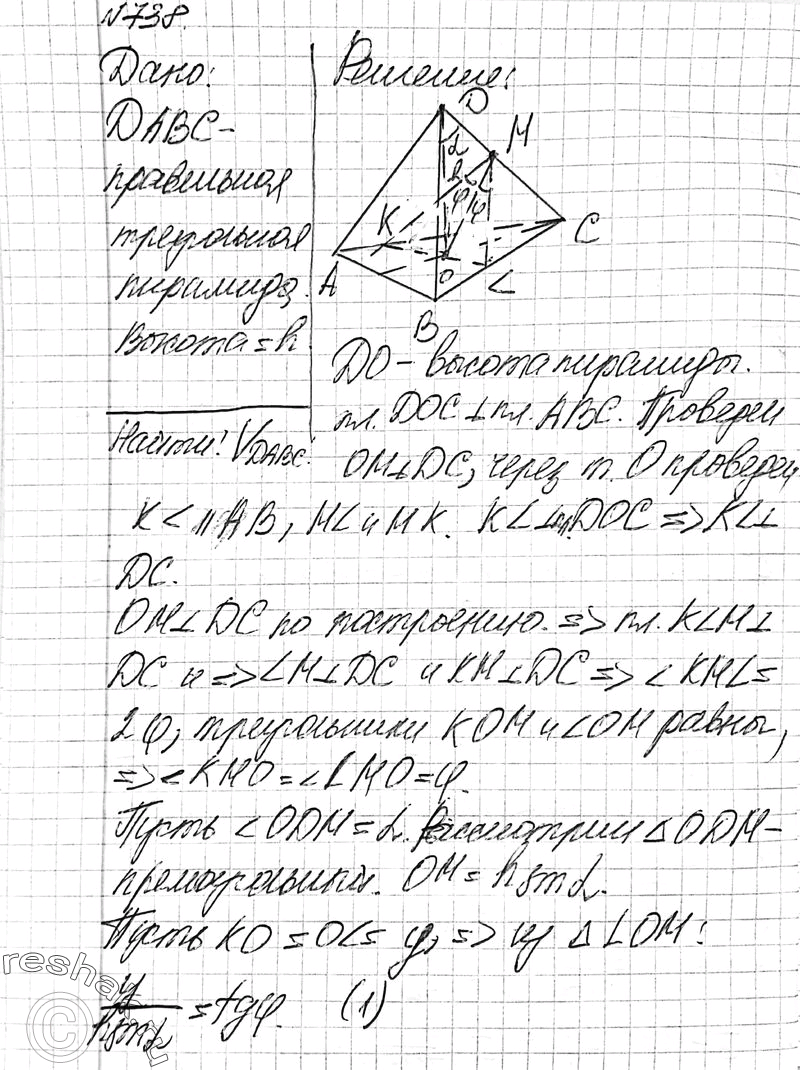 №738.
Дано:
DABC-
правильная
треугольная
пирамида.
Высота = h.
Найти: V DABC.
Решение:
D
M
α
2φ
φ
K
C
A
O
L
B
DO - высота пирамиды.
пл. DOC ⊥ пл. ABC. Проведем
OM⊥DC, через т. O проведем
KL || AB, ML и MK. KL⊥пл. DOC => KL⊥
DC.
OM⊥DC по построению. => пл. KLM⊥
DC и => LM⊥DC и KM⊥DC => ∠KML =
2φ, треугольники KOM и LOM равны,
=> ∠KMO = ∠LMO = φ.
Пусть ∠ODM = α. Рассмотрим △ODM -
прямоугольный. OM = h sin α.
Пусть KO = OL = y, => из △LOM:
y / h sin α = tg φ. (1)
reshak.ru
©